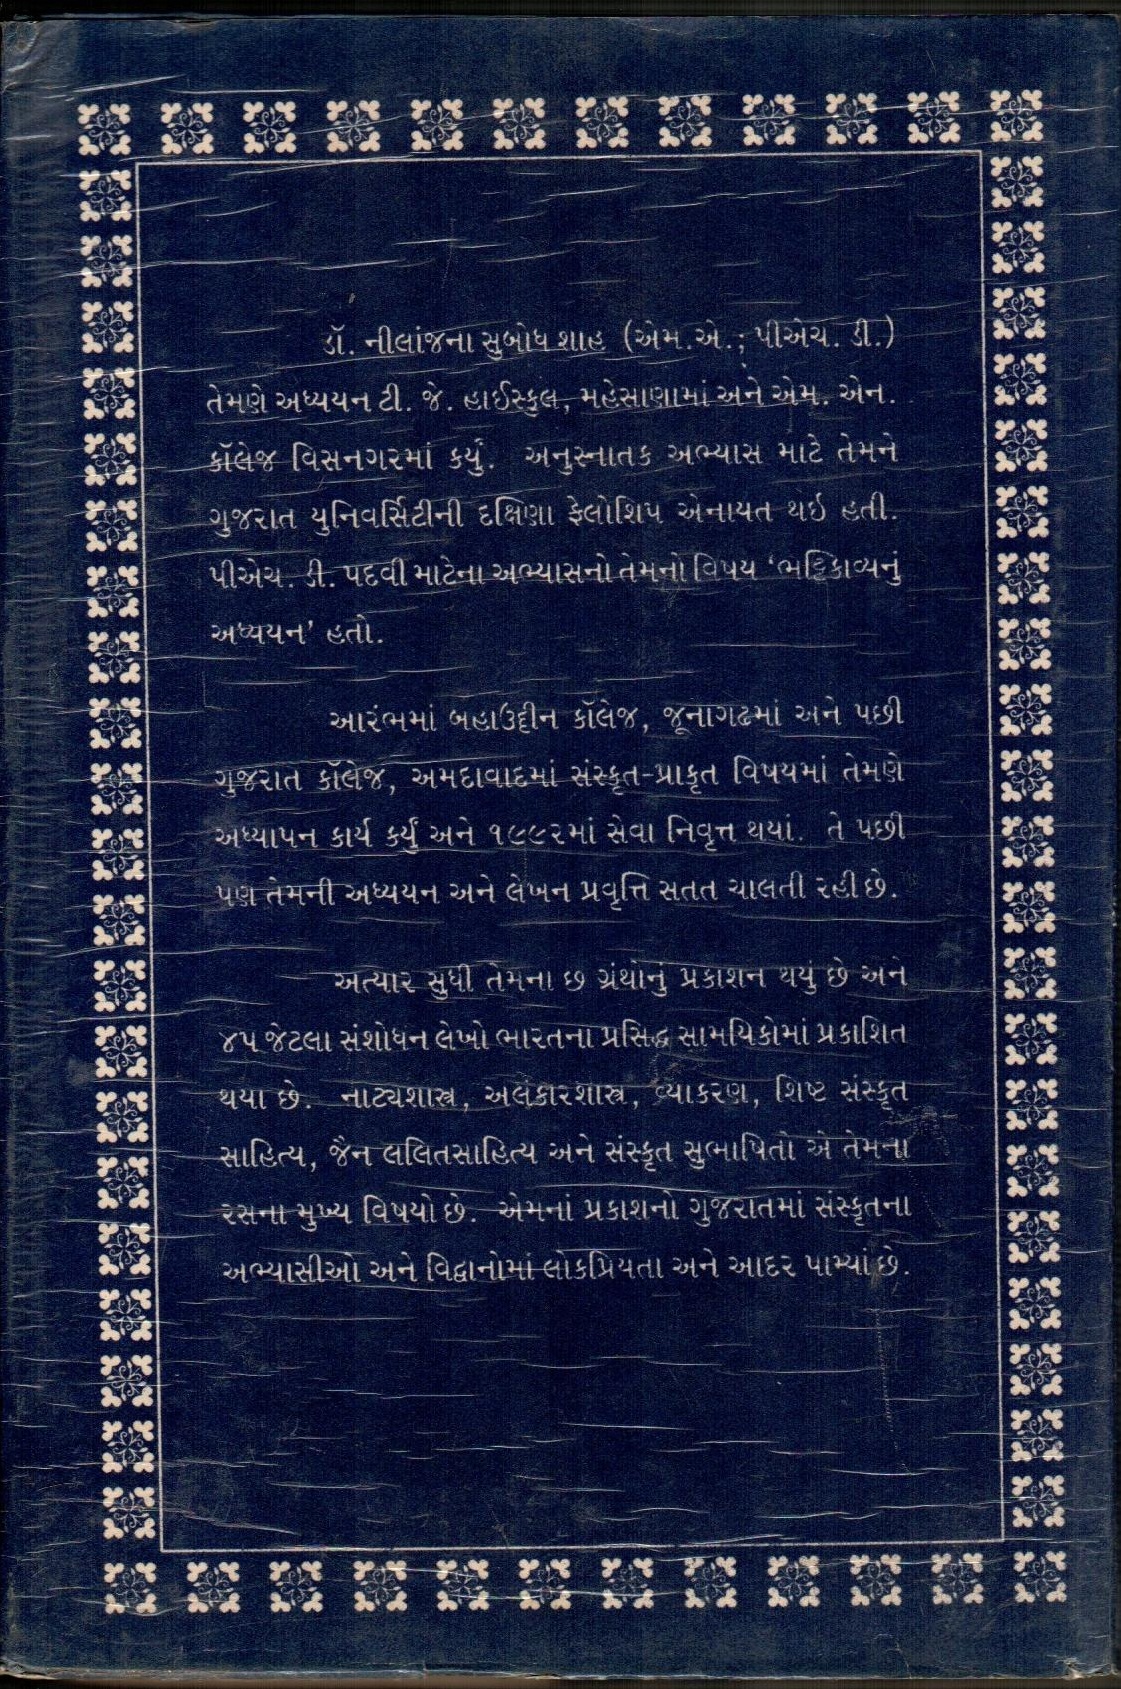 ડૉ. નીલાંજના સુબોધ શાહ (એમ.એ.; પીએચ. ડી.)
તેમણે અધ્યયન ટી. જે. હાઈસ્કુલ, મહેસાણામાં અને એમ. એન.
કૉલેજ વિસનગરમાં કર્યું. અનુસ્નાતક અભ્યાસ માટે તેમને
ગુજરાત યુનિવર્સિટીની દક્ષિણા ફેલોશિપ એનાયત થઇ હતી.
પીએચ. ડી. પદવી માટેના અભ્યાસનો તેમનો વિષય ‘ભટ્ટિકાવ્યનું
અધ્યયન’ હતો.
આરંભમાં બહાઉદ્દીન કૉલેજ, જૂનાગઢમાં અને પછી
ગુજરાત કૉલેજ, અમદાવાદમાં સંસ્કૃત-પ્રાકૃત વિષયમાં તેમણે
અધ્યાપન કાર્ય કર્યું અને ૧૯૯૨માં સેવા નિવૃત્ત થયાં. તે પછી
પણ તેમની અધ્યયન અને લેખન પ્રવૃત્તિ સતત ચાલતી રહી છે.
અત્યાર સુધી તેમના છ ગ્રંથોનું પ્રકાશન થયું છે અને
૪૫ જેટલા સંશોધન લેખો ભારતના પ્રસિદ્ધ સામયિકોમાં પ્રકાશિત
થયા છે. નાટ્યશાસ્ત્ર, અલંકારશાસ્ત્ર, વ્યાકરણ, શિષ્ટ સંસ્કૃત
સાહિત્ય, જૈન લલિતસાહિત્ય અને સંસ્કૃત સુભાષિતો એ તેમના
રસના મુખ્ય વિષયો છે. એમનાં પ્રકાશનો ગુજરાતમાં સંસ્કૃતના
અભ્યાસીઓ અને વિદ્વાનોમાં લોકપ્રિયતા અને આદર પામ્યાં છે.